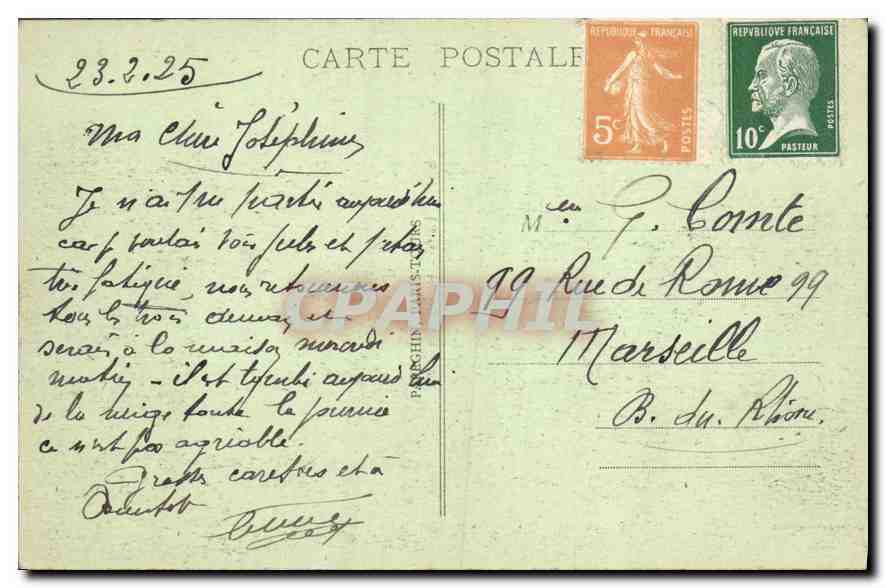 CARTE POSTALE
23.2.25
REPVBLIQUE FRANÇAISE
5c
POSTES
REPVBLIQUE FRANÇAISE
10c
POSTES
PASTEUR
Ma Chère Joséphine
Je n'ai pu partir aujourd'hui
car voulais voir Jules et j'étais
très fatiguée, nous retournons
tous les trois demain et
serai à la maison mercredi
matin - il est tombé aujourd'hui
de la neige toute la journée
ce n'est pas agréable.
Grosses caresses et à
bientôt
G. Comte
99 Rue de Rome 99
Marseille
B. du Rhône
PARIS-TOURS
CPAPHIL